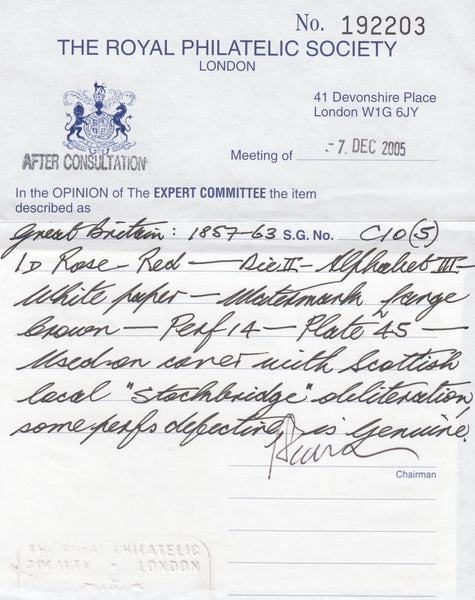 No. 192203
THE ROYAL PHILATELIC SOCIETY
LONDON
41 Devonshire Place
London W1G 6JY
AFTER CONSULTATION
Meeting of -7 DEC 2005
In the OPINION of The EXPERT COMMITTEE the item
described as
Great Britain: 1857-63 S.G. No. C10(5)
1D Rose-Red — Die II - Alphabet III -
White paper — Watermark large
Crown — Perf 14 — Plate 45 —
Used on cover with Scottish
local "Stockbridge" obliteration,
some perfs defective, is genuine.
Chairman
THE ROYAL PHILATELIC
SOCIETY · LONDON